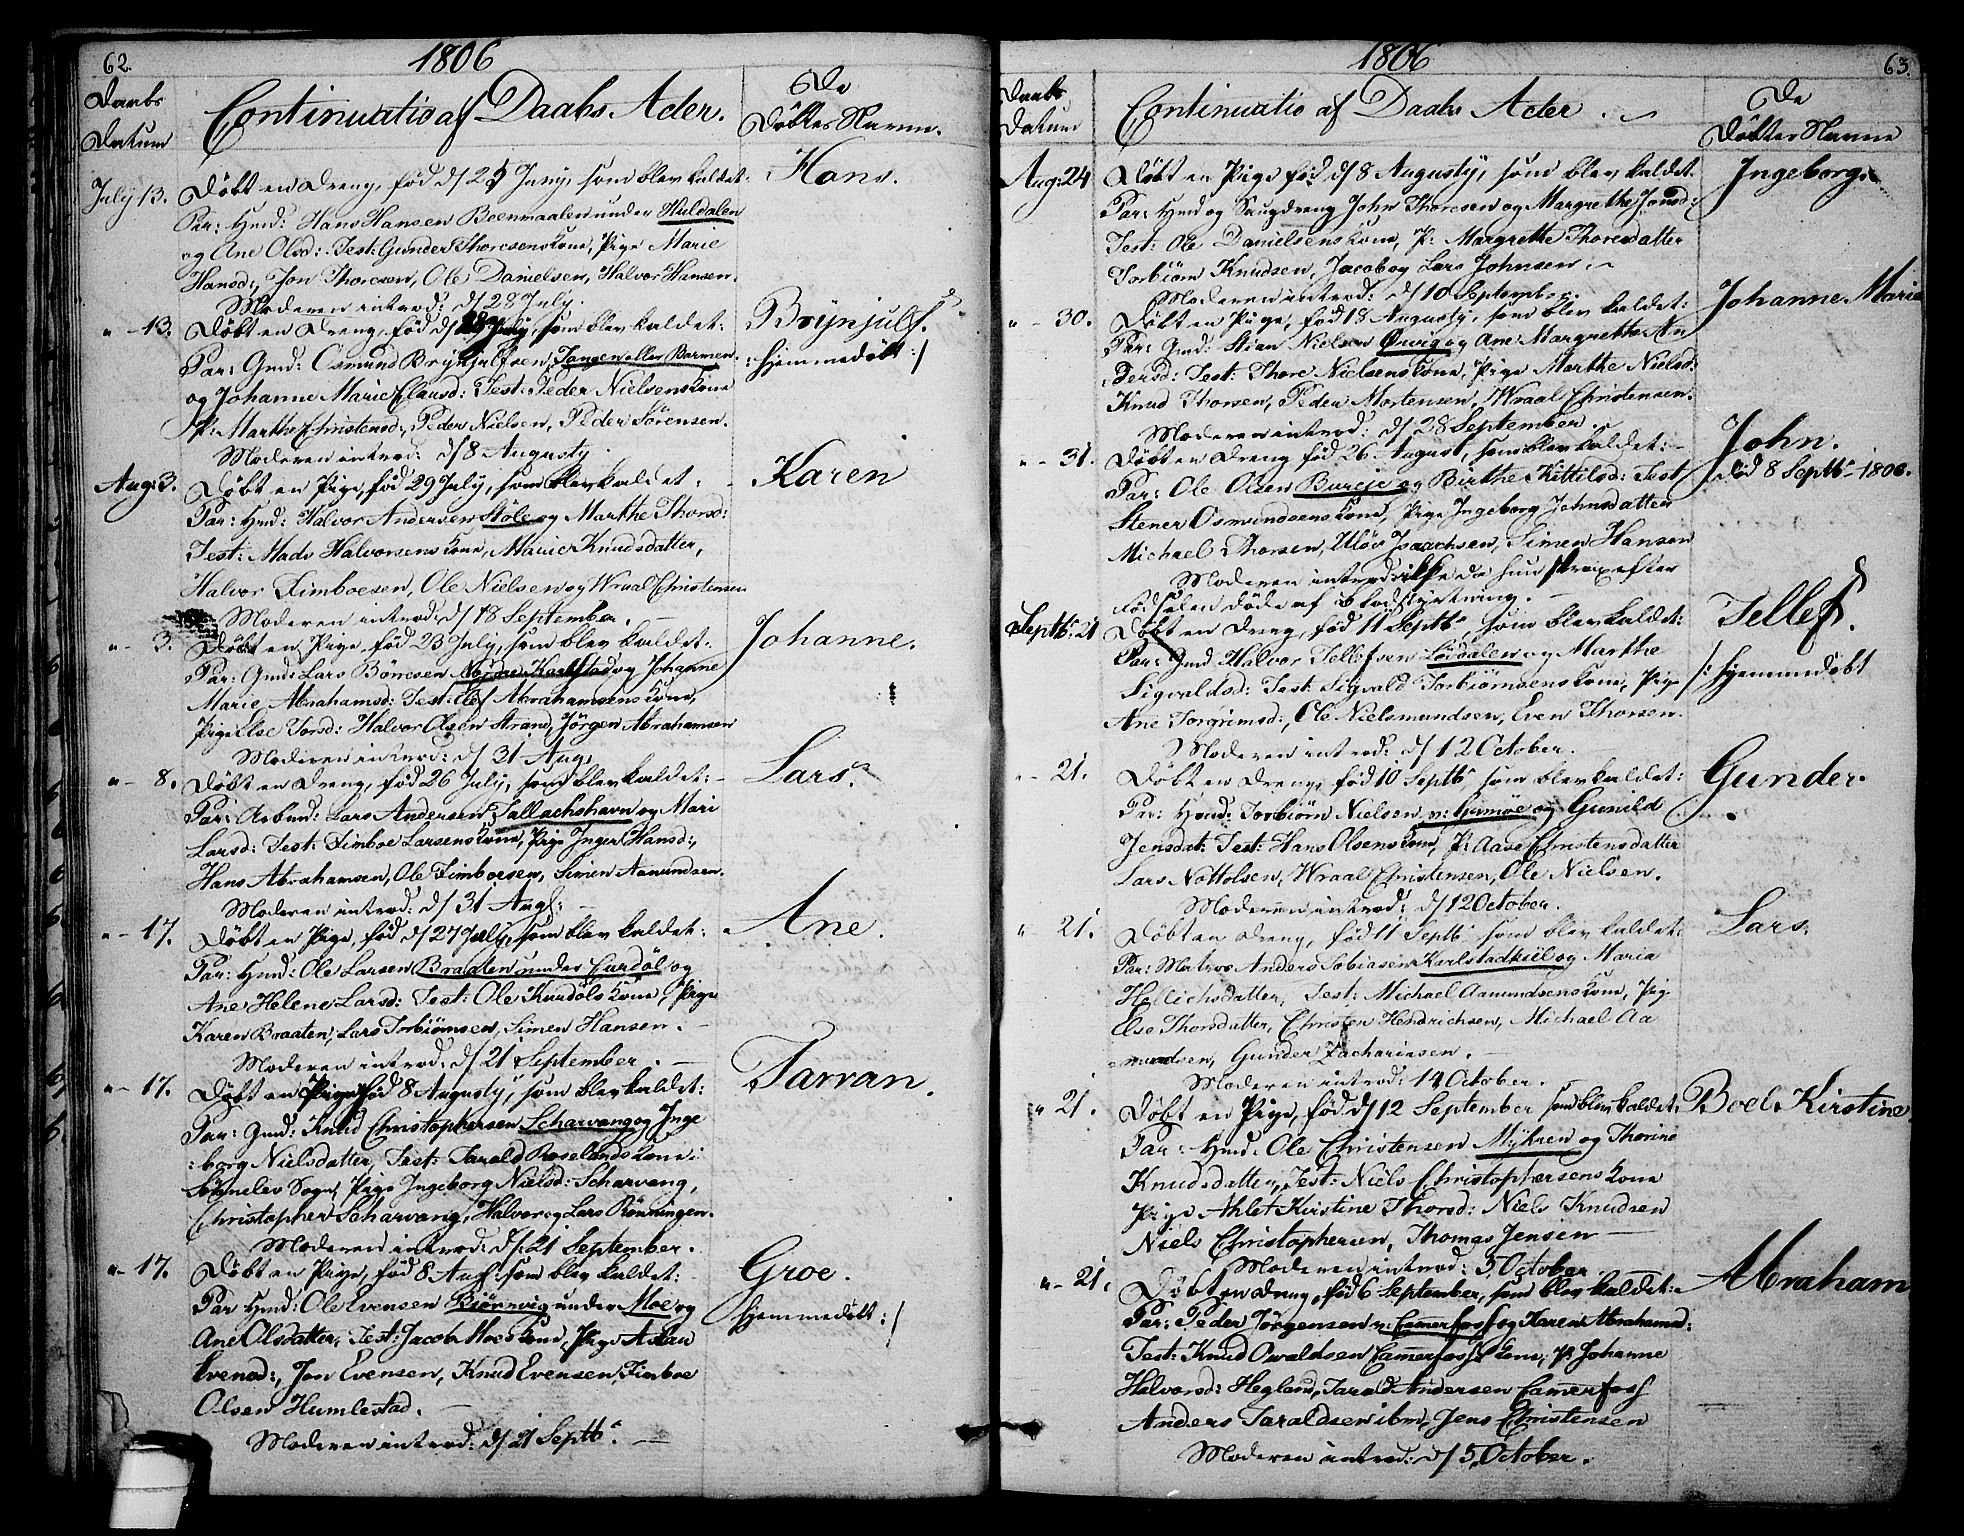 62.
1806
Daabs Datum
Continuatio af Daabs Acter.
De Döbtes Navne.
July 13.
Döbt en Dreng, fød d/ 25 Juny, som blev kaldet:
Hans.
Par: Hmd: Hans Hansen Boenmaalen under Huldalen
og Ane Olsd: Test: Gunder Thoresens Kone, Pige Marie
Hansd:, Jon Thoresen, Ole Danielsen, Halvor Hansen.
Moderen introd: d/ 28 July.
" - 13.
Döbt en Dreng, fød d/ July, som blev kaldet:
Brynjulf.
Par: Gmd: Osmund Brynjulfsen, Tangen eller Bermen
/: hjemmedöbt :/
og Johanne Marie Clausd: Test: Peder Nielsens Kone
P: Marthe Christensd:, Peder Nielsen, Peder Sörensen.
Moderen introd: d/ 8 Augusty.
Aug: 3.
Döbt en Pige, fød 29 July, som blev kaldet:
Karen
Par: Hmd: Halvor Andersen Støle og Marthe Thorsd:
Test: Mads Halvorsens Kone, Marie Knudsdatter,
Halvor Timboesen, Ole Nielsen og Wraal Christensen
Moderen introd: d/ 18 September. —
" - 3.
Döbt en Pige, fød 23 July, som blev kaldet:
Johanne.
Par: Gmd: Lars Börresen Nordre Karlstad og Johanne
Marie Abrahamsd: Test: Elef Abrahamsens Kone,
Pige Else Torsd: Halvor Olsen Strand, Jörgen Abrahamsen
Moderen introd: d/ 31 Aug.
" - 8.
Döbt en Dreng, fød 26 July, som blev kaldet: -
Lars.
Par: Arbmd: Lars Andersen Sallachshavn og Mari
Larsd: Test: Timboe Larsens Kone, Pige Inger Hansd:,
Hans Abrahamsen, Ole Timboesen, Simen Aamundsen.
Moderen introd: d/ 31 Aug: —
" - 17.
Döbt en Pige, fød d/ 27 July, som blev kaldet:
Ane.
Par: Hmd: Ole Larsen Braaten under Curdöl og
Ane Helene Larsd: Test: Ole Kurdöls Kone, Pige
Karen Braaten, Lars Torbiörnsen, Simen Hansen.
Moderen introd: d/ 21 September. —
" - 17.
Döbt en Pige fød 8 Augusty, som blev kaldet:
Tarran.
Par: Gmd: Knud Christophersen Scharvang og Inge
:borg Nielsdatter, Test: Tarald Roselands Kone i
Sönnelev Sogn, Pige Ingeborg Nielsd: Scharvang,
Christopher Scharvang, Halvor og Lars Rönningen.
Moderen introd: d/ 21 September.
" - 17.
Döbt en Pige, fød 8 Aug: som blev kaldet:
Groe.
Par Hmd: Ole Evensen Biörnvig under Moe og
hjemmedöbt :/
Ane Olsdatter, Test: Jacob Moes Kone, Pige Aslau
Evensd:, Jon Evensen, Knud Evensen, Timboe
Olsen Humlestad. —
Moderen introd: d/ 21 Septbr. —
1806
63.
Daabs Datum
Continuatio af Daabs Acter.
De Döbtes Navne
Aug: 24
Döbt en Pige fød d/ 8 Augusty, som blev kaldet.
Ingeborg.
Par: Hmd og Saugdreng John Thoresen og Margrethe Jonsd:
Test: Ole Danielsens Kone, P: Margrethe Thoresdatter
Torbiörn Knudsen, Jacob og Lars Johnsen. —
Moderen introd: d/ 10 Septemb:
" - 30.
Döbt en Pige, fød 18 Augusty, som blev kaldet:
Johanne Marie
Par: Gmd: Stian Nielsen Qwig og Ane Margrethe An
dersd: Test: Thore Nielsens Kone, Pige Marthe Nielsd:
Knud Thorsen, Peder Mortensen, Wraal Christensen.
Moderen introd: d/ 28 September.
" - 31.
Döbt en Dreng fød 26 August, som blev kaldet: -
John.
Par: Ole Olsen Bureie og Birthe Kittilsd: Test
Död 8 Septbr 1806.
Stener Osmundsens Kone, Pige Ingeborg Johnsdatter
Michael Thorsen, Uløv Isaachsen, Simen Hansen
Moderen introd: ikke da hun strax efter
Födselen döde af Blodstyrtning. —
Septbr. 21
Döbt en Dreng, fød 11 Septbr, som blev kaldet:
Tellef.
Par: Gmd Halvor Tellefsen Lövdalen og Marthe
/: hjemmedöbt
Sigvaldsd: Test: Sigvald Torbiörnsens Kone, Pige
Ane Torgrimsd:, Ole Nielsmundsen, Even Thorsen.
Moderen introd: d/ 12 October. —
" - 21.
Döbt en Dreng, fød 10 Septbr, som blev kaldet:
Gunder.
Par: Hmd: Torbiörn Nielsen n: Gumöe og Gunild
Jensdat: Test: Hans Olsens Kone, P: Aase Christensdatter
Lars Nottolsen, Wraal Christensen, Ole Nielsen.
Moderen introd: d/ 12 October.
" 21.
Döbt en Dreng, fød 11 Septbr som blev kaldet:
Lars.
Par: Matros Anders Tobiasen Karlstadkiil og Maria
Hellichsdatter, Test: Michael Aamundsens Kone, Pige
Else Thorsdatter, Christen Hendrichsen, Michael Aa
mundsen, Gunder Zachariasen. —
Moderen introd: 14 October.
" 21.
Döbt en Pige, fød d/ 12 September som blev kaldet:
Boel Kirstine
Par: Hmd: Ole Christensen Myhren og Thorine
Knudsdatter, Test: Niels Christophersens Kone
Pige Ahlet Kirstine Thorsd: Niels Knudsen
Niels Christophersen, Thomas Jensen —
Moderen introd: 5 October.
" - 21.
Döbt en Dreng, fød 6 September, som blev kaldet: -
Abraham
Par: Peder Jörgensen n: Camerfoss og Karen Abrahamsd:
Test: Knud Owaldsen Camerfoss Kone, P: Johanne
Halvorsd: Hegland, Tarald Andersen Camerfoss
Anders Taraldsen ibm, Jens Christensen
Moderen introd: d/ 5 October.